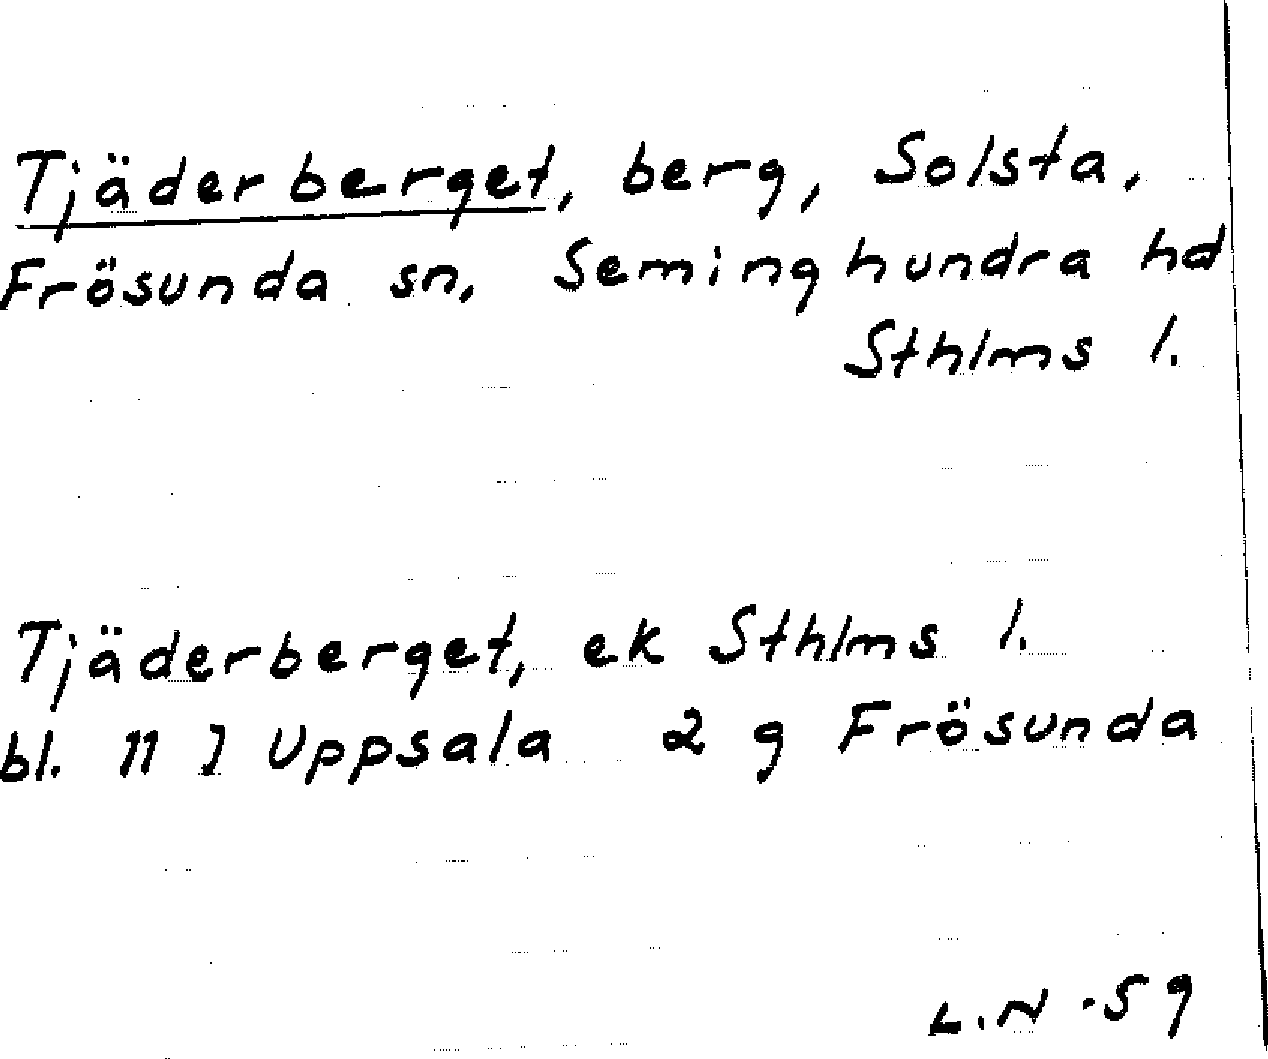 Tjäderberget, berg, Solsta,
Frösunda sn, Seminghundra hd
Sthlms l.
Tjäderberget, ek Sthlms l.
bl. 11 I Uppsala 2 g Frösunda
L.N -59